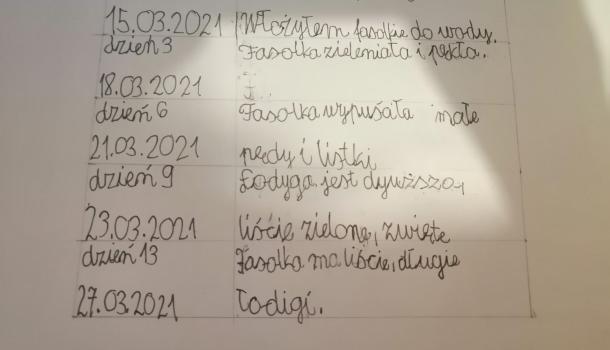 15.03.2021 Włożyłem fasolkie do wody.
dzień 3 Fasolka zieleniała i pękła.
18.03.2021
dzień 6 Fasolka wypuśała małe
21.03.2021 pędy i listki
dzień 9 Łodyga jest dywższa
23.03.2021 liście zielone, zwięte
dzień 13 Fasolka ma liście, długie
27.03.2021 łodigi.